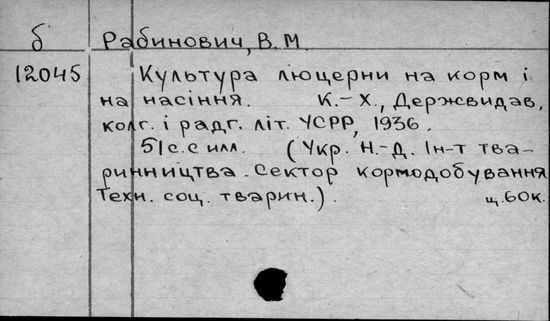 б Рабинович, В. М.
12045 Культура люцерни на корм і
на насіння. К.-Х., Держвидав,
колг. і радг. літ. УСРР, 1936.
51с. с илл. (Укр. Н.-Д. Ін-т тва-
ринництва. Сектор кормодобування
Техн. соц. тварин.). щ. 60к.